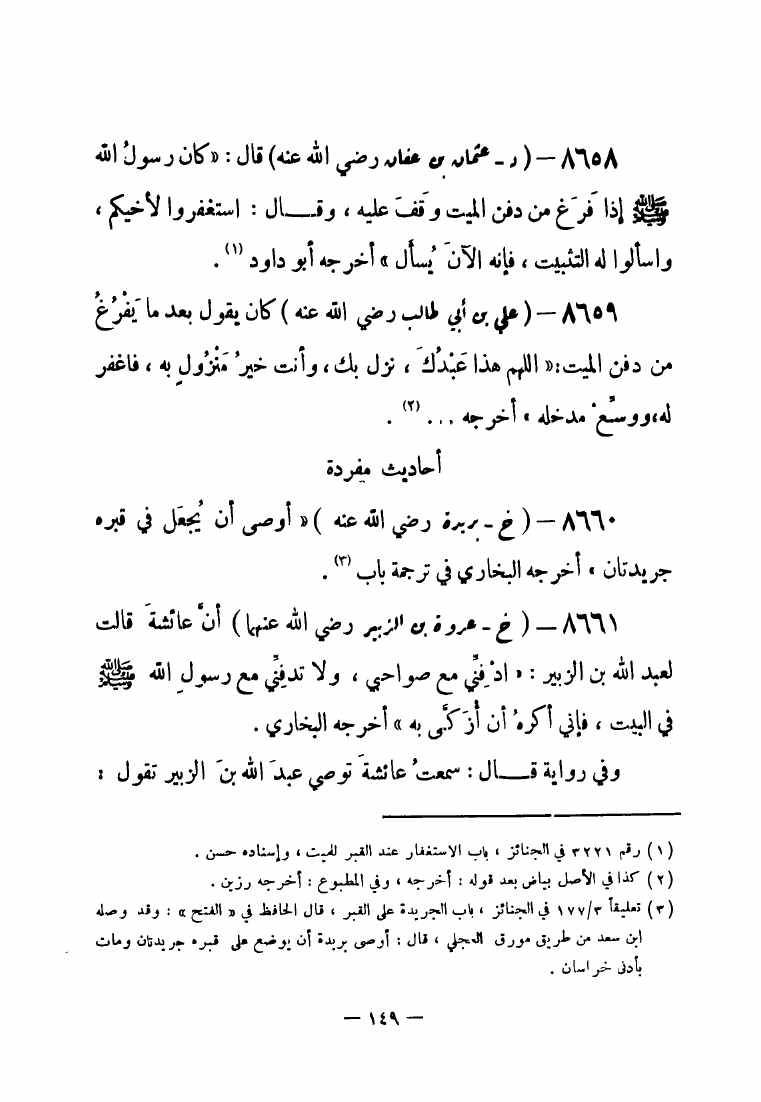 ٨٦٥٨ — ( د - عثمان بن عفان رضي الله عنه) قال : «كان رسولُ الله
ﷺ إذا فَرَغَ من دفن الميت وقَفَ عليه ، وقـــال : استغفروا لأخيكم ،
واسألوا له التثبيت ، فإنه الآنَ يُسأَل » أخرجه أبو داود (١) .
٨٦٥٩ — ( علي بن أبي طالب رضي الله عنه ) كان يقول بعد ما يَفْرُغُ
من دفن الميت:« اللهم هذا عَبْدُكَ ، نزل بك، وأنت خيرُ مَنْزُولٍ به ، فاغفر
له،ووسِّعْ مدخله » أخرجه ... (٢) .
أحاديث مفردة
٨٦٦٠ — ( خ - بريدة رضي الله عنه ) « أوصى أن يُجعَل في قبره
جريدتان » أخرجه البخاري في ترجمة باب (٣) .
٨٦٦١ — ( خ - عروة بن الزبير رضي الله عنهما ) أنَّ عائشةَ قالت
لعبد الله بن الزبير : « ادْفِنِّي مع صواحبي ، ولا تدفِنِّي مع رسولِ الله ﷺ
في البيت ، فإني أكرهُ أن أُزَكَّى به » أخرجه البخاري .
وفي رواية قـــال : سمعتُ عائشةَ توصي عبدَ الله بنَ الزبير تقول :
(١) رقم ٣٢٢١ في الجنائز ، باب الاستغفار عند القبر للميت ، وإسناده حسن .
(٢) كذا في الأصل بياض بعد قوله : أخرجه ، وفي المطبوع : أخرجه رزين .
(٣) تعليقاً ١٧٧/٣ في الجنائز ، باب الجريدة على القبر ، قال الحافظ في « الفتح » : وقد وصله
ابن سعد من طريق مورق العجلي ، قال : أوصى بريدة أن يوضع على قبره جريدتان ومات
بأدنى خراسان .
— ١٤٩ —